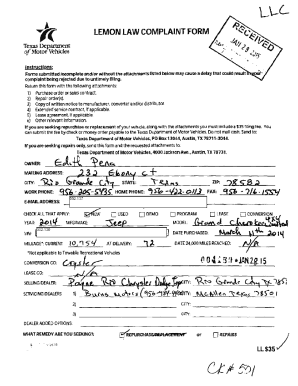 LLC
LEMON LAW COMPLAINT FORM
Texas Department
of Motor Vehicles
RECEIVED
JAN 28 2015
Instructions:
Forms submitted incomplete and/or without the attachments listed below may cause a delay that could result in your complaint
being rejected due to untimely filing.
Return this form with the following attachments:
1) Purchase order or sales contract
2) Repair order(s)
3) Copy of written notice to manufacturer, converter and/or distributor
4) Extended service contract, if applicable
5) Lease agreement, if applicable
6) Other relevant information.
If you are seeking repurchase or replacement of your vehicle, along with the attachments you must include a $35 filing fee. You
can submit the fee by check or money order payable to the Texas Department of Motor Vehicles. Do not mail cash. Send to:
Texas Department of Motor Vehicles, PO Box 13044, Austin, TX 78711-3044.
If you are seeking repairs only, send this form and the requested attachments to:
Texas Department of Motor Vehicles, 4000 Jackson Ave., Austin, TX 78731.
OWNER: Edith Pena
MAILING ADDRESS: 232 Ebony ct
CITY: Rio Grande City STATE: Texas ZIP: 78582
WORK PHONE: HOME PHONE: 956-422-0113 FAX: 956-716-1554
E-MAIL ADDRESS:
CHECK ALL THAT APPLY: NEW USED DEMO PROGRAM FAST CONVERSION
YEAR: 2014 MFR/MAKE: Jeep MODEL: Grand Cherokee
VIN: DATE PURCHASED: March 11th 2014
MILEAGE* CURRENT: 10,754 AT DELIVERY: 72 DATE 24,000 MILES REACHED: N/A
*Not applicable to Towable Recreational Vehicles
CONVERSION CO:
LEASE CO: N/A
SELLING DEALER: Payne Rio Chrysler Dodge Jeep CITY: Rio Grande City TX
SERVICING DEALERS: 1) Burns Motors CITY: McAllen Texas 78501
CITY:
CITY:
DEALER ADDED OPTIONS:
WHAT REMEDY ARE YOU SEEKING? REPURCHASE/REPLACEMENT or REPAIRS
LL $35
CK# 501